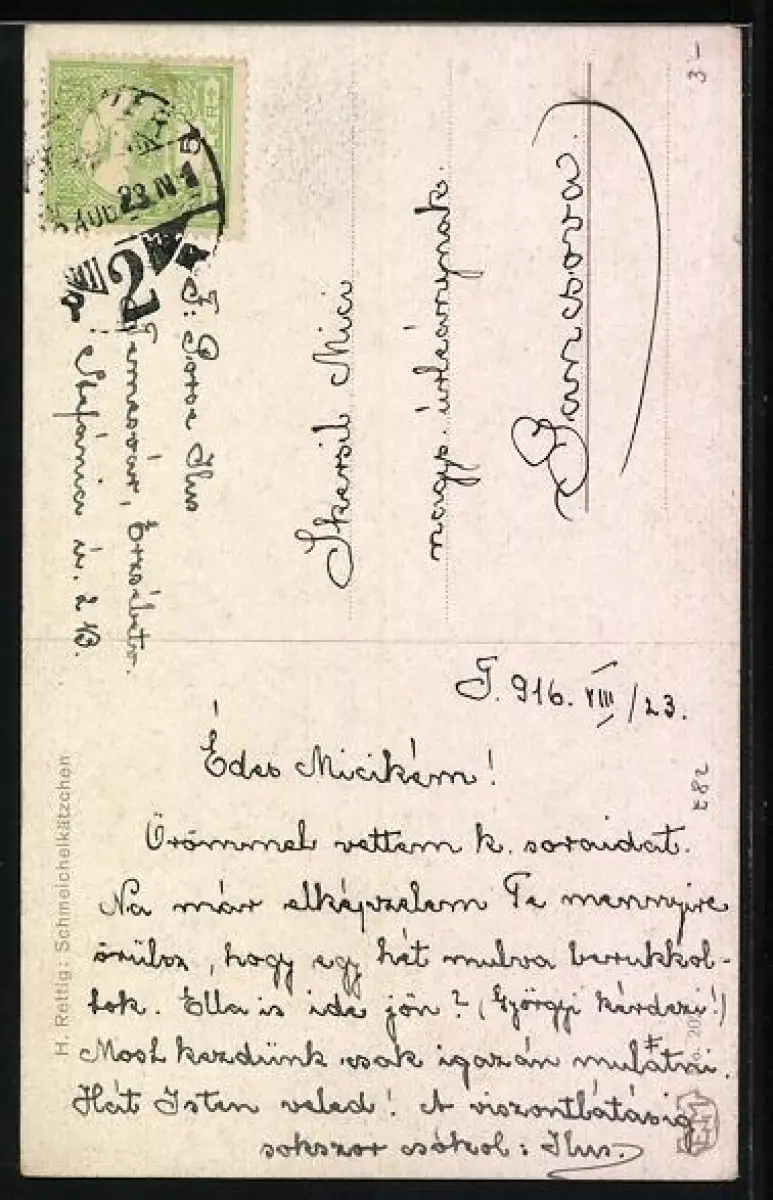 3-
AUG. 23 N 1
5
2
F: Gorse Ilus
Temesvár, Erzsébetv.
Stefánia ú. 2
Mici
nagys. úrleánynak.
T. 916. VIII/23.
Édes Micikém!
Örömmel vettem k. soraidat.
Na már elképzelem Te mennyire
örülsz, hogy egy hét mulva berukkol-
tok. Ella is ide jön? (Györgyi kérdezi!)
Most kezdünk csak igazán mulatni.
Hát Isten veled! A viszontlátásig
sokszor csókol: Ilus.
282
H. Rettig: Schmeichelkätzchen